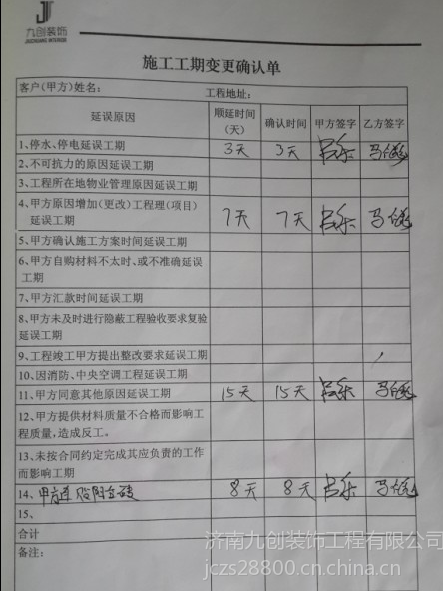 九创装饰
JIUCHUANG INTERIOR
施工工期变更确认单
客户(甲方)姓名:
工程地址:
延误原因
顺延时间
(天)
确认时间
甲方签字
乙方签字
1、停水、停电延误工期 3天 3天
2、不可抗力的原因延误工期
3、工程所在地物业管理原因延误工期
4、甲方原因增加(更改)工程理(项目)
延误工期 7天 7天
5、甲方确认施工方案时间延误工期
6、甲方自购材料不太时、或不准确延误
工期
7、甲方汇款时间延误工期
8、甲方未及时进行隐蔽工程验收要求复验
延误工期
9、工程竣工甲方提出整改要求延误工期
10、因消防、中央空调工程延误工期
11、甲方同意其他原因延误工期 15天 15天
12、甲方提供材料质量不合格而影响工
程质量,造成反工。
13、未按合同约定完成其应负责的工作
而影响工期
14、甲方 8天 8天
15、
合计
备注:
济南九创装饰工程有限公司
jczs28800.cn.china.cn